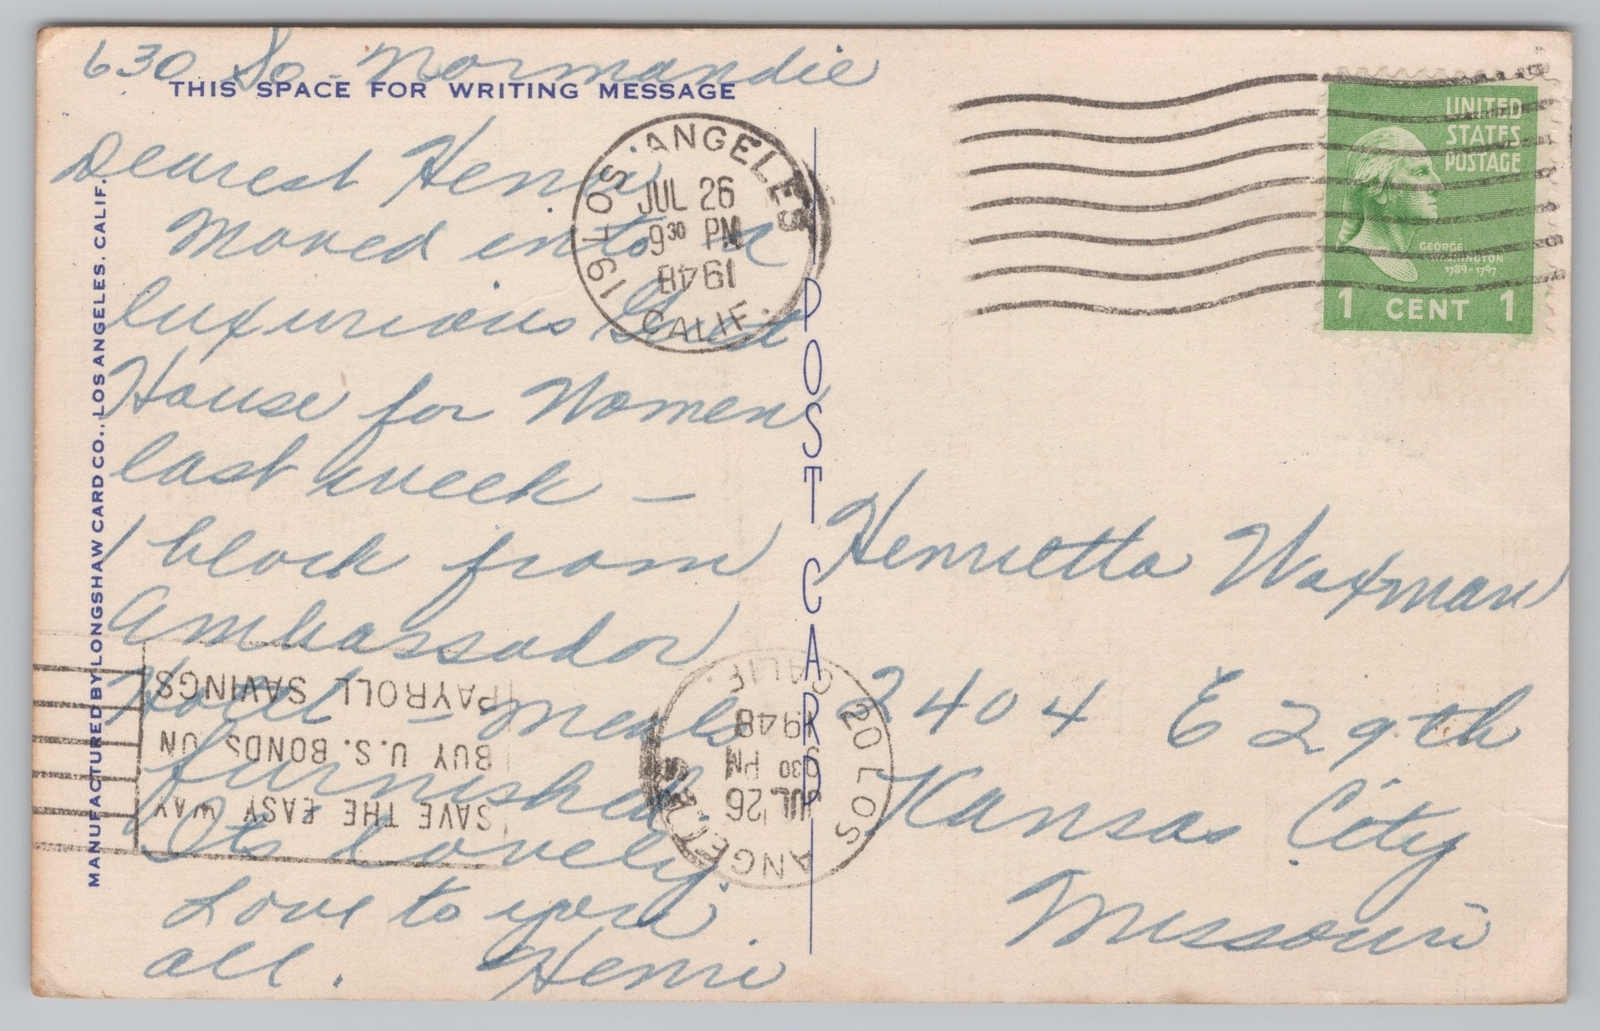 630 So. Normandie
THIS SPACE FOR WRITING MESSAGE
Dearest Henri
Moved into a
luxurious Guest
House for Women
last week –
1 block from
Ambassador
Hotel – meals
furnished
Its Lovely.
Love to you
all. Henri
MANUFACTURED BY LONGSHAW CARD CO., LOS ANGELES, CALIF.
POST CARD
LOS ANGELES
19
JUL 26
9 30 PM
1948
CALIF.
UNITED
STATES
POSTAGE
GEORGE
WASHINGTON
1789-1797
1 CENT 1
Henrietta Waxman
2404 E 29th
Kansas City
Missouri
SAVE THE EASY WAY
BUY U.S. BONDS ON
PAYROLL SAVINGS
LOS ANGELES
20
JUL 26
6 30 PM
1948
CALIF.